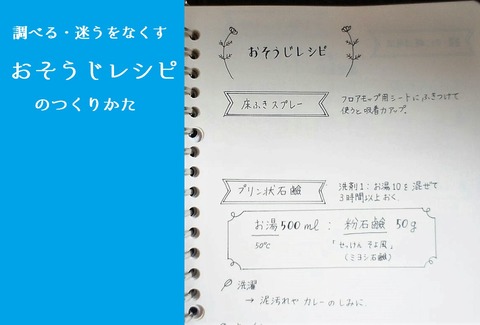 調べる・迷うをなくす
おそうじレシピ
のつくりかた
おそうじレシピ
床ふきスプレー
フロアモップ用シートにふきつけて
使うと吸着力アップ。
プリン状石鹸
洗剤1:お湯10を混ぜて
3時間以上おく
お湯500ml : 粉石鹸 50g
50℃
「せっけん そよ風」
(ミヨシ石鹸)
洗濯
→ 泥汚れやカレーのしみに